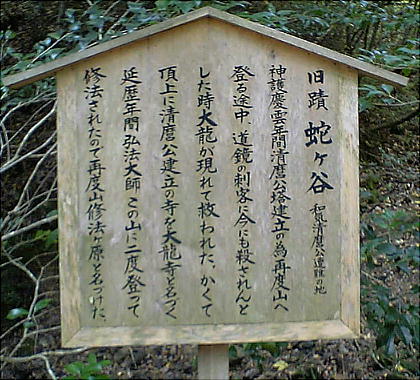 旧蹟 蛇ヶ谷 和気清麿公遭難の地
神護慶雲年間清麿公塔建立の為再度山へ
登る途中、道鏡の刺客に今にも殺されんと
した時大龍が現れて救われた、かくて
頂上に清麿公建立の寺を大龍寺と名づく
延歴年間弘法大師この山に二度登って
修法されたので再度山修法ヶ原と名づけた